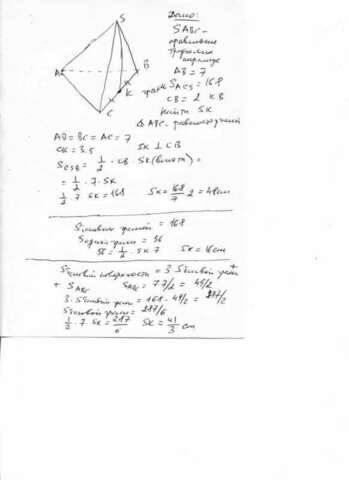 S
A
B
K
C
Дано:
SABC-
правильная
пирамида
AB = 7
грань S ACS = 168
CB = 2 KB
Найти SK
Δ ABC - равносторонний
AB = BC = AC = 7
CK = 3.5 SK ⊥ CB
S CSB = 1/2 · CB · SK (высота) =
= 1/2 · 7 · SK
1/2 · 7 SK = 168 SK = 168/7 · 2 = 48 cm
S боковых граней = 168
S одной грани = 56
56 = 1/2 · SK 7 SK = 16 cm
S боковой поверхности = 3 · S боковой грани +
+ S ABC S ABC = 7 7/2 = 49/2
3 · S боковой грани = 168 - 49/2 = 287/2
S боковой грани = 287/6
1/2 · 7 · SK = 287/6 SK = 41/3 cm